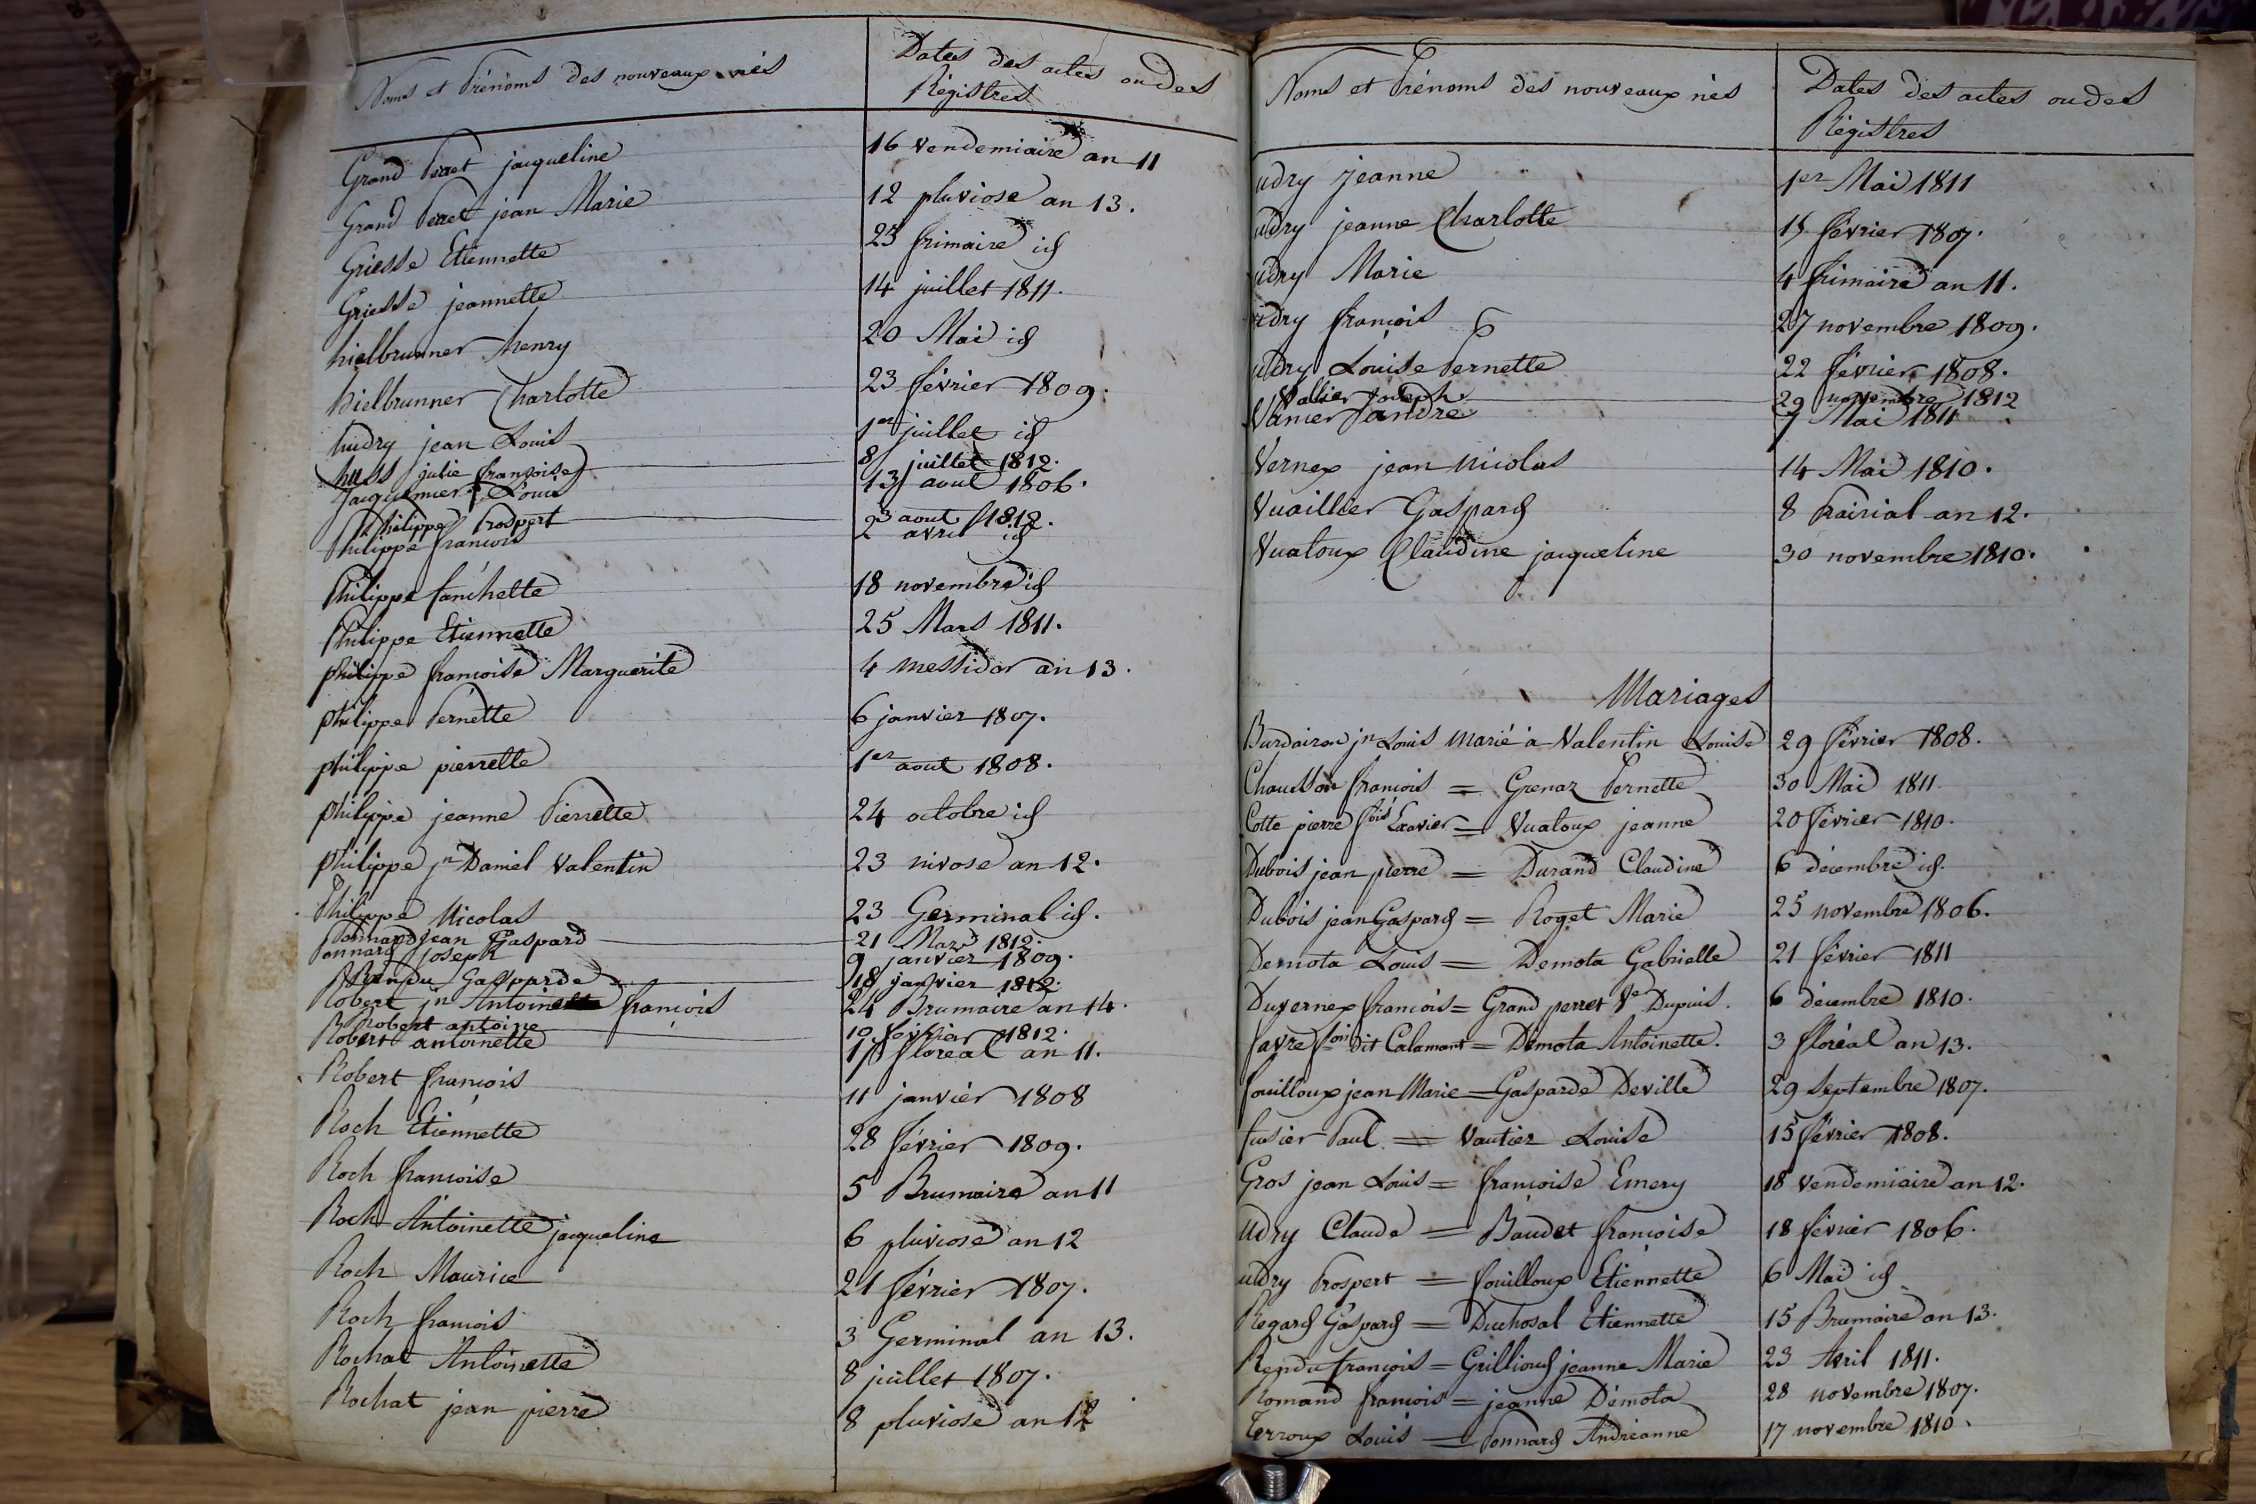 Noms et Prénoms des nouveaux nés Dates des actes ou des
Régistres
Grand Perret jacqueline 16 vendemiaire an 11
Grand Perret jean Marie 12 pluviose an 13.
Griesse Etiennette 23 frimaire id
Griesse jeannette 14 juillet 1811.
hielbrunner henry 20 Mai id
hielbrunner Charlotte 23 février 1809.
hudry jean Louis 1er juillet id
huss julie françoise 8 juillet 1812.
Jacquemier Louis 13 aout 1806.
Philippe Prospert 23 aout 1812.
Philippe francois 2 avril id
Philippe fanchette 18 novembre id
Philippe Etiennette 25 Mars 1811.
philippe francoise Marguerite 4 messidor an 13.
philippe Pernette 6 janvier 1807.
philippe pierrette 1er aout 1808.
philippe jeanne Pierrette 24 octobre id
philippe jn Daniel Valentin 23 nivose an 12.
Philippe Nicolas 23 Germinal id.
Ponnard jean Gaspard 21 Mars 1812.
Ponnard joseph 9 janvier 1809.
Rendu Gasparde 18 janvier 1812.
Robert jn Antoine françois 24 Brumaire an 14.
Robert antoine 10 février 1812.
Robert antoinette 17 floreal an 11.
Robert francois 11 janvier 1808
Roch Etiennette 28 février 1809.
Roch francoise 5 Brumaire an 11
Roch Antoinette jacqueline 6 pluviose an 12
Roch Maurice 21 février 1807.
Roch francois 3 Germinal an 13.
Rochat Antoinette 8 juillet 1807.
Rochat jean pierre 8 pluviose an 12
Noms et Prénoms des nouveaux nés Dates des actes ou des
Régistres
udry jeanne 1er Mai 1811
udry jeanne Charlotte 15 février 1807.
udry Marie 4 frimaire an 11.
udry francois 27 novembre 1809.
udry Louise Pernette 22 février 1808.
Vallier Joseph 29 novembre 1812
Vanier andre 7 Mai 1811
Vernex jean nicolas 14 Mai 1810.
Vuaillier Gaspard 8 Prairial an 12.
Vualoux Claudine jacqueline 30 novembre 1810.
Mariages
Burdairon jn Louis Marié à Valentin Louise 29 février 1808.
Chausson francois = Grenaz Pernette 30 Mai 1811
Cotte pierre fois Xavier = Vualoux jeanne 20 février 1810.
Dubois jean pierre = Durand Claudine 6 décembre id.
Dubois jean Gaspard = Roget Marie 25 novembre 1806.
Demota Louis = Demota Gabrielle 21 février 1811
Duvernex francois = Grand perret Ve Dupuis. 6 décembre 1810.
favre fois dit Calamant = Démota Antoinette. 3 floréal an 13.
fouilloux jean Marie = Gasparde Deville 29 septembre 1807.
fusier Paul = Vautier Louise 15 février 1808.
Gros jean Louis = francoise Emery 18 vendemiaire an 12.
udry Claude = Baudet francoise 18 février 1806.
udry Prospert = fouilloux Etiennette 6 Mai id
Regard Gaspard = Duchosal Etiennette 15 Brumaire an 13.
Rendu françois = Grilliond jeanne Marie 23 Avril 1811.
Romand francois = jeanne Démota 28 novembre 1807.
Terroux Louis = Ponnard Andréanne 17 novembre 1810